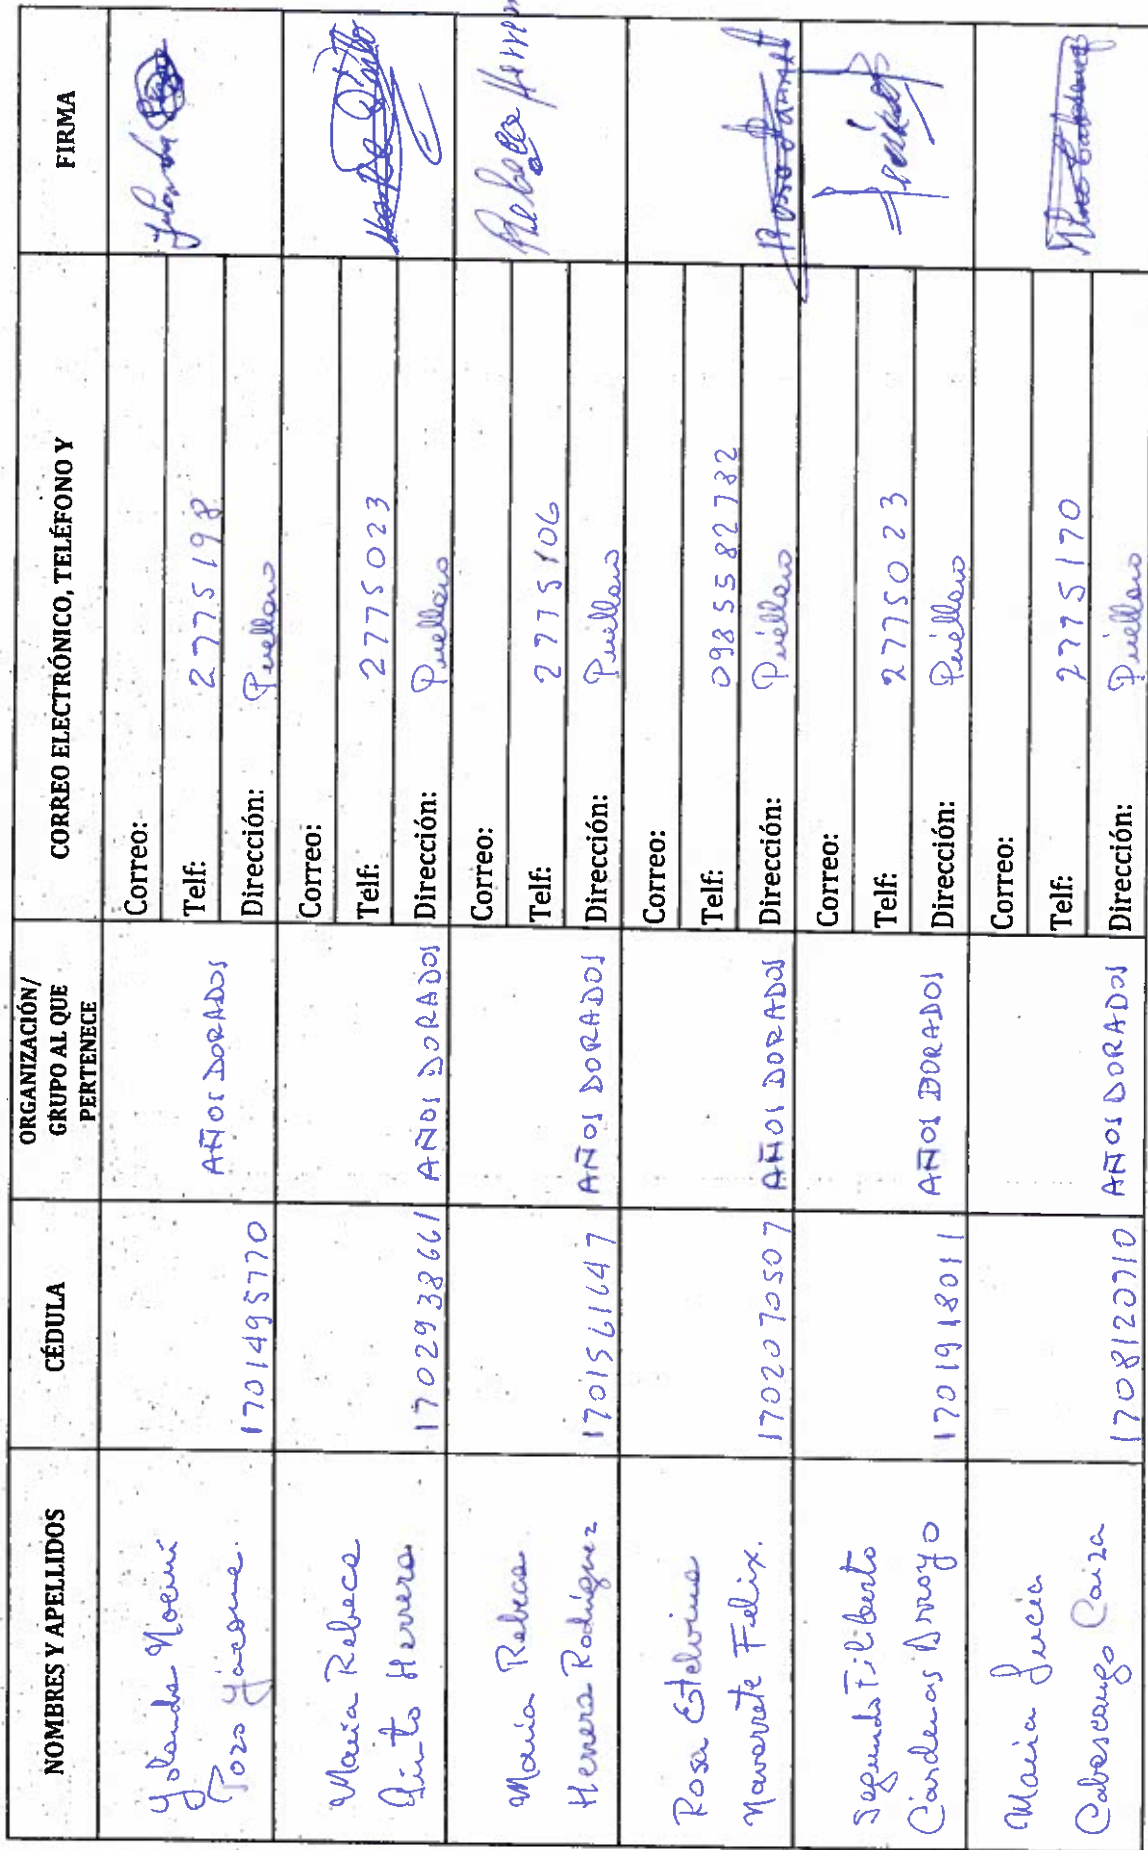 NOMBRES Y APELLIDOS
CÉDULA
ORGANIZACIÓN/
GRUPO AL QUE
PERTENECE
CORREO ELECTRÓNICO, TELÉFONO Y
FIRMA
Yolanda Noemí
Pozo Yácome.
1701495770
AÑOS DORADOS
Correo:
Telf: 2775198
Dirección: Puéllaro
Yolanda Pozo
Maria Rebeca
Quinto Herrera
1702938661
AÑOS DORADOS
Correo:
Telf: 2775023
Dirección: Puéllaro
Maria Rebeca
Herrera Rodríguez
1701561647
AÑOS DORADOS
Correo:
Telf: 2775106
Dirección: Puéllaro
Rebeca Herrera
Rosa Estelvina
Navarrete Felix.
1702070507
AÑOS DORADOS
Correo:
Telf: 0985582782
Dirección: Puéllaro
Segundo Filiberto
Cárdenas Arroyo
1701918011
AÑOS DORADOS
Correo:
Telf: 2775023
Dirección: Puéllaro
Maria Lucia
Cabascango Caiza
1708120710
AÑOS DORADOS
Correo:
Telf: 2775170
Dirección: Puéllaro